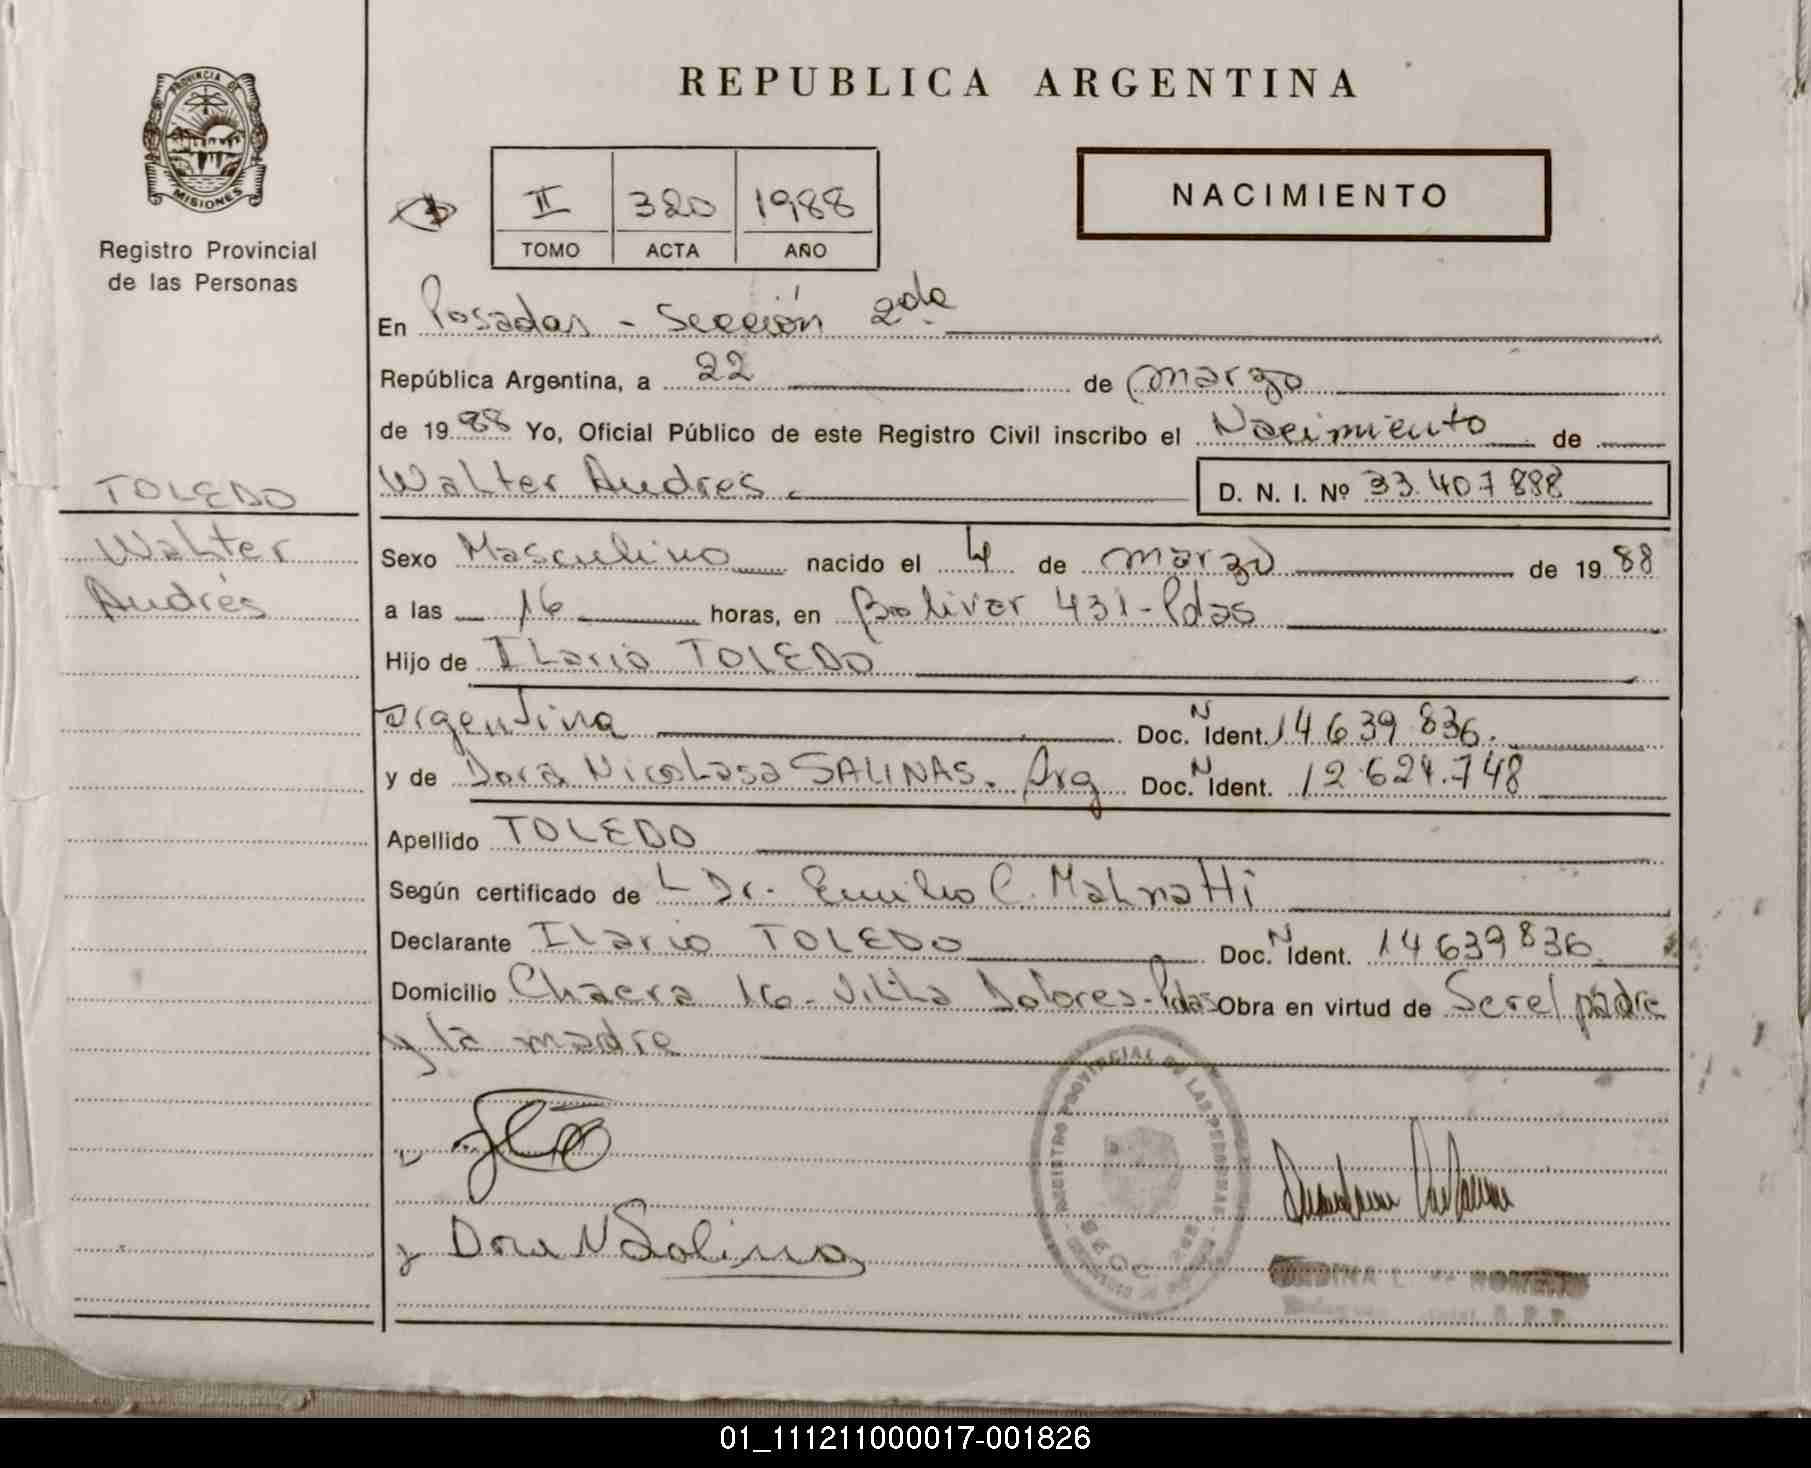 PROVINCIA DE
MISIONES
Registro Provincial
de las Personas
REPUBLICA ARGENTINA
II 320 1988
TOMO ACTA AÑO
NACIMIENTO
En Posadas - Sección 2da
República Argentina, a 22 de marzo
de 1988 Yo, Oficial Público de este Registro Civil inscribo el Nacimiento de
Walter Andrés. D. N. I. Nº 33.407.888
TOLEDO
Walter
Andrés
Sexo Masculino nacido el 4 de marzo de 1988
a las 16 horas, en Bolivar 431-Pdas
Hijo de Ilario TOLEDO
argentina Doc. N Ident. 14639.836.
y de Dora Nicolasa SALINAS. Arg Doc. N Ident. 12.624.748
Apellido TOLEDO
Según certificado de L Dr. Emilio C. Malnatti
Declarante Ilario TOLEDO Doc. N Ident. 14639836.
Domicilio Chacra 16-Villa Dolores-Pdas Obra en virtud de Ser el padre
y la madre
REGISTRO PROVINCIAL DE LAS PERSONAS
Dora N Salinas
01_111211000017-001826